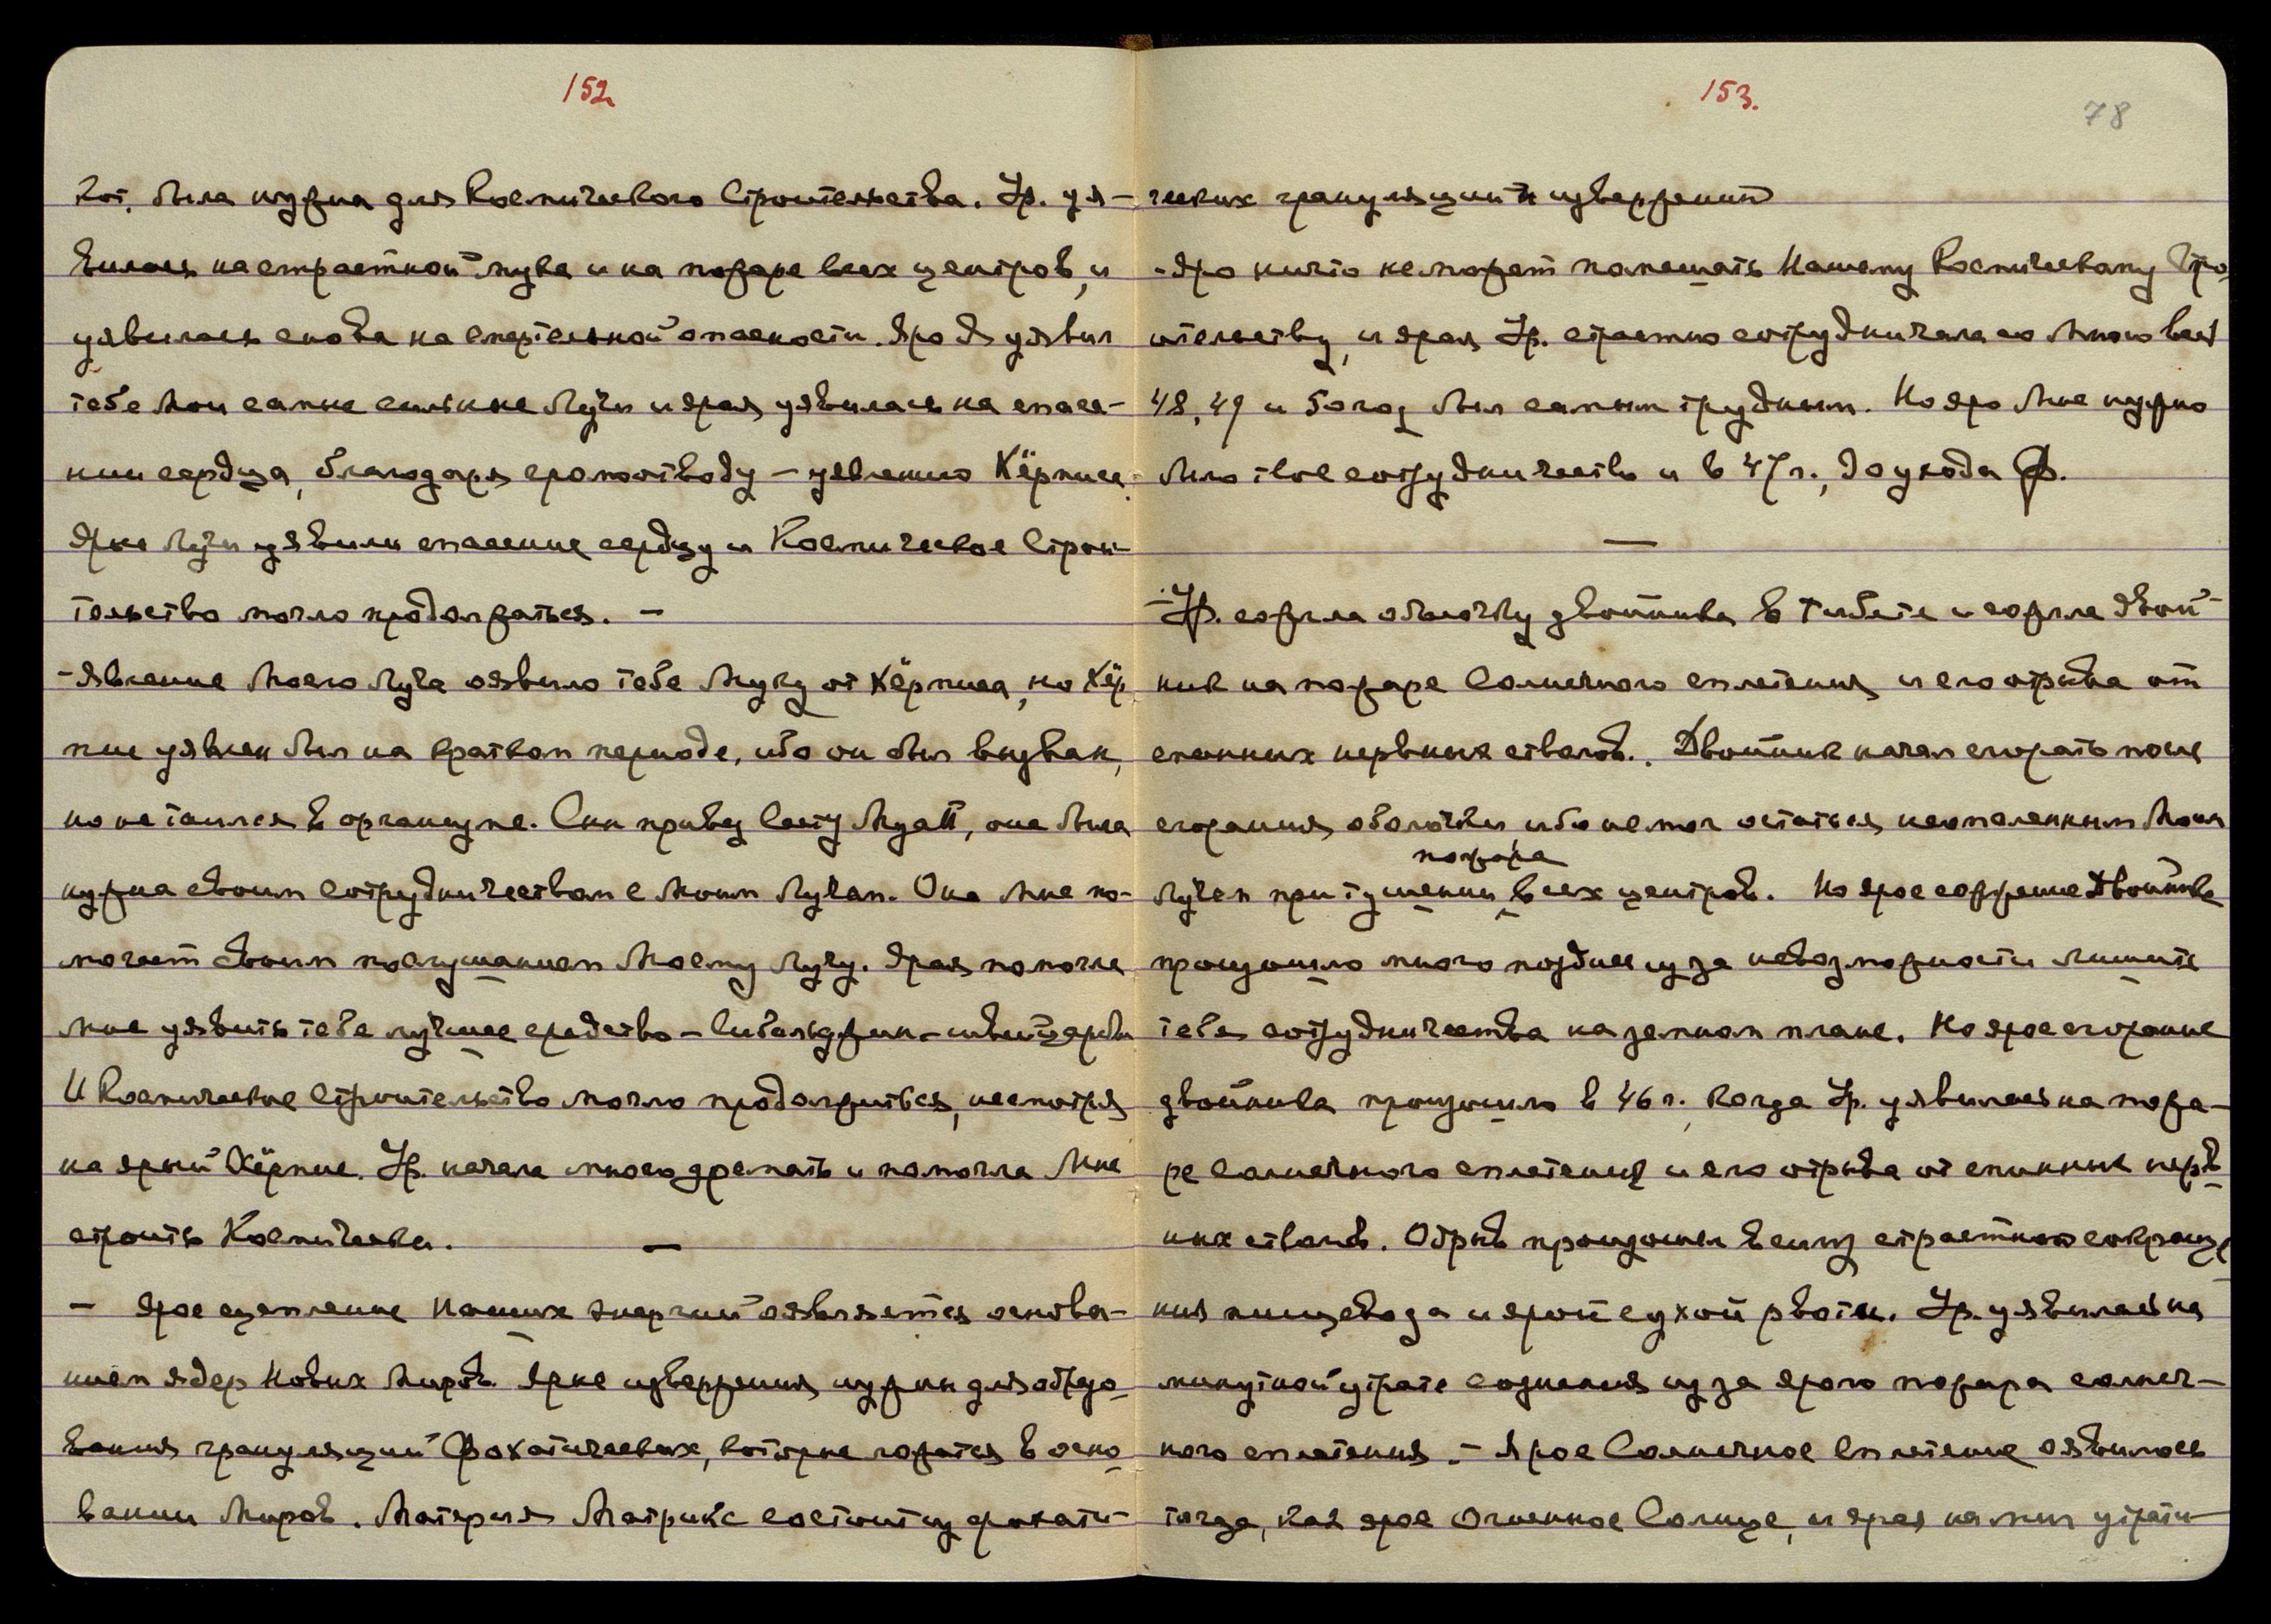 152
кот. была нужна для Космического Строительства. Ур. уя-
вилась на страстной муке и на пожаре всех центров, и
уявилась снова на смертельной опасности. Яро Я уявил
тебе Мои самые сильные Лучи и ярая уявилась на спасе-
нии сердца, благодаря громоотводу – уявлению Кёрниса.
Ярые Лучи уявили спасение сердцу и Космическое Строи-
тельство могло продолжаться. –
- Явление Моего Луча оявило тебе Муку от Кёрниса, но Кёр
нис уявлен был на кратком периоде, ибо он был вызван,
но не таился в организме. Сын привез Сестру, она была
нужна своим сотрудничеством с Моим Лучам. Она Мне по-
могает своим послушанием Моему Лучу. Ярая помогла
Мне уявить тебе лучшее средство –
И Космическое Строительство могло продолжиться, несмотря
на ярый Кёрнис. Ур. начала много дремать и помогла Мне
строить Космически. —
– Ярое сцепление Наших энергий оявляется основа-
нием ядер Новых Миров. Ярые извержения нужны для образо-
вания грануляций Фохатических, которые ложатся в осно
вании Миров. Материя Матрикс состоит из фохати-
153.
78
ческих грануляций и извержений
- Яро ничто не может помешать Нашему Космическому Стро
ительству, и ярая Ур. страстно сотрудничала со Мною весь
48, 49 и 50 год был самым трудным. Но яро Мне нужно
было твое сотрудничество и в 47 г., до ухода Ф.
—
- Ур. сожгла оболочку двойника в Тибете и сожгла двой-
ник на пожаре Солнечного сплетения и его отрыва от
спинных нервных стволов. Двойник начал сгорать после
сгорания оболочки ибо не мог остаться неопаленным Моим
пожара
Лучем при тушении всех центров. Но ярое сожжение Двойника
произошло много позднее из за невозможности лишить
тебя сотрудничества на земном плане. Но ярое сгорание
двойника произошло в 46 г. когда Ур. уявилась на пожа-
ре Солнечного сплетения и его отрыва от спинных нерв
ных стволов. Отрыв произошел в силу страстного сокраще
ния пищевода и ярой сухой рвоты. Ур. уявилась на
минутной утрате сознания из за ярого пожара солнеч-
ного сплетения. – Ярое Солнечное Сплетение оявилось
тогда, как ярое Огненное Солнце, и ярая на миг утрати-